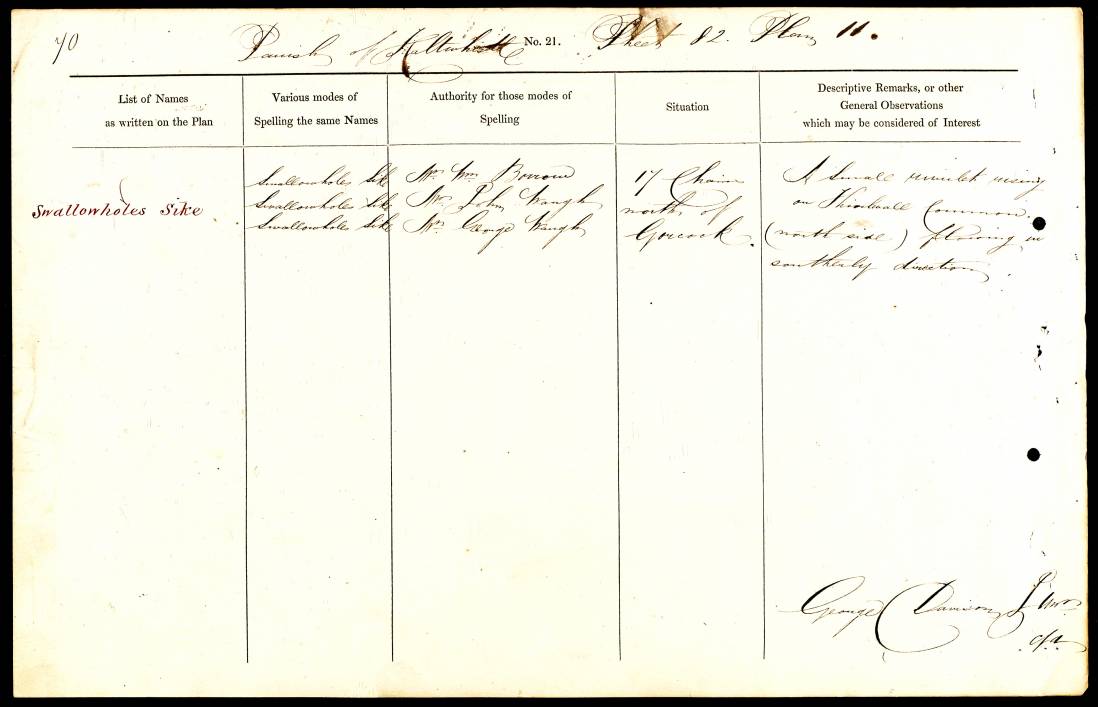 70
Parish of Haltwhistle No. 21. Sheet 82. Plan 11.
List of Names
as written on the Plan
Various modes of
Spelling the same Names
Authority for those modes of
Spelling
Situation
Descriptive Remarks, or other
General Observations
which may be considered of Interest
Swallowholes Sike
Swallowholes Sike
Swallowholes Sike
Swallowholes Sike
Mr. Wm. Borrow
Mr. John Waugh
Mr. George Waugh
17 Chains
north of
Gorcock.
A small rivulet rising
on Thirlwall Common.
(north side) flowing in
southerly direction.
George Davison